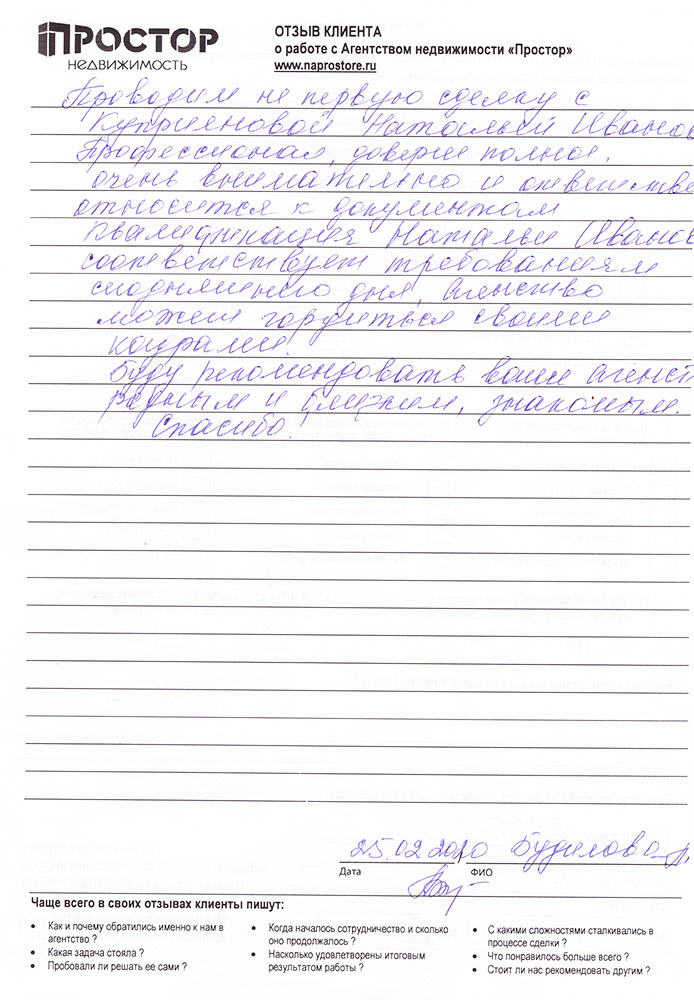 ПРОСТОР
НЕДВИЖИМОСТЬ
ОТЗЫВ КЛИЕНТА
о работе с Агентством недвижимости «Простор»
www.naprostore.ru
Проводим не первую сделку с
Куприяновой Натальей Иванов
Профессионал, доверие полное.
очень внимательно и ответстве
относится к документам
Квалификация Натальи Иванов
соответствует требованиям
сегодняшнего дня, Агенство
может гордиться своими
кадрами.
Буду рекомендовать ваше агенст
родным и близким, знакомым.
Спасибо.
25.02.2020
Дата ФИО
Чаще всего в своих отзывах клиенты пишут:
• Как и почему обратились именно к нам в
агентство ?
• Какая задача стояла ?
• Пробовали ли решать ее сами ?
• Когда началось сотрудничество и сколько
оно продолжалось ?
• Насколько удовлетворены итоговым
результатом работы ?
• С какими сложностями сталкивались в
процессе сделки ?
• Что понравилось больше всего ?
• Стоит ли нас рекомендовать другим ?